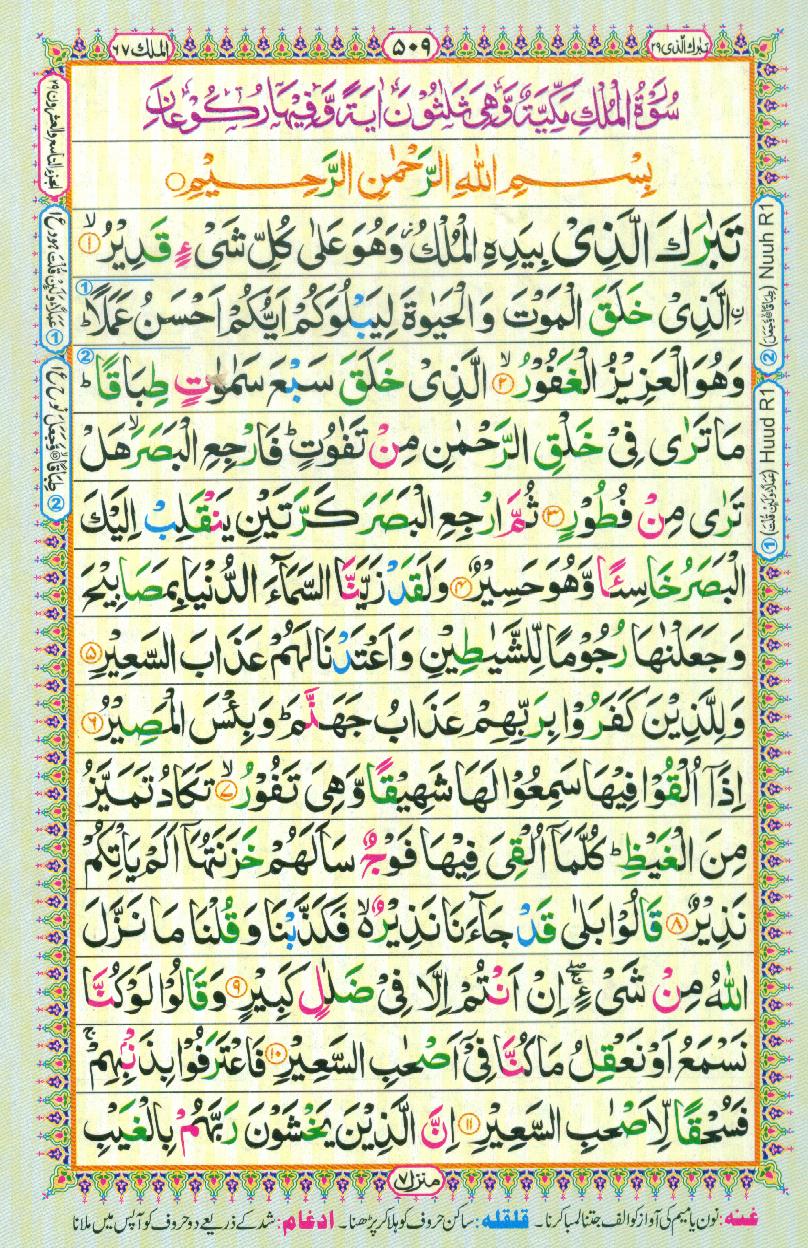 تبٰرك الذى ٢٩
٥٠٩
الملك ٦٧
سُوْرَةُ الْمُلْكِ مَكِّيَّةٌ وَّهِىَ ثَلٰثُوْنَ اٰيَةً وَّفِيْهَا رُكُوْعَانِ
بِسْمِ اللّٰهِ الرَّحْمٰنِ الرَّحِيْمِ
تَبٰرَكَ الَّذِىْ بِيَدِهِ الْمُلْكُ ز وَهُوَ عَلٰى كُلِّ شَىْءٍ قَدِيْرُ ۙ ١
نِ الَّذِىْ خَلَقَ الْمَوْتَ وَ الْحَيٰوةَ لِيَبْلُوَكُمْ اَيُّكُمْ اَحْسَنُ عَمَلًا ؕ
وَهُوَ الْعَزِيْزُ الْغَفُوْرُ ۙ ٢ الَّذِىْ خَلَقَ سَبْعَ سَمٰوٰتٍ طِبَاقًا ؕ
مَا تَرٰى فِىْ خَلْقِ الرَّحْمٰنِ مِنْ تَفٰوُتٍ ؕ فَارْجِعِ الْبَصَرَ ۙ هَلْ
تَرٰى مِنْ فُطُوْرٍ ٣ ثُمَّ ارْجِعِ الْبَصَرَ كَرَّتَيْنِ يَنْقَلِبْ اِلَيْكَ
الْبَصَرُ خَاسِئًا وَّهُوَ حَسِيْرٌ ٤ وَلَقَدْ زَيَّنَّا السَّمَآءَ الدُّنْيَا بِمَصَابِيْحَ
وَ جَعَلْنٰهَا رُجُوْمًا لِّلشَّيٰطِيْنِ وَ اَعْتَدْنَا لَهُمْ عَذَابَ السَّعِيْرِ ٥
وَ لِلَّذِيْنَ كَفَرُوْا بِرَبِّهِمْ عَذَابُ جَهَنَّمَ ؕ وَ بِئْسَ الْمَصِيْرُ ٦
اِذَآ اُلْقُوْا فِيْهَا سَمِعُوْا لَهَا شَهِيْقًا وَّهِىَ تَفُوْرُ ۙ ٧ تَكَادُ تَمَيَّزُ
مِنَ الْغَيْظِ ؕ كُلَّمَآ اُلْقِىَ فِيْهَا فَوْجٌ سَاَلَهُمْ خَزَنَتُهَآ اَلَمْ يَاْتِكُمْ
نَذِيْرٌ ٨ قَالُوْا بَلٰى قَدْ جَآءَنَا نَذِيْرٌ ۙ فَكَذَّبْنَا وَ قُلْنَا مَا نَزَّلَ
اللّٰهُ مِنْ شَىْءٍ ۖ اِنْ اَنْتُمْ اِلَّا فِىْ ضَلٰلٍ كَبِيْرٍ ٩ وَ قَالُوْا لَوْ كُنَّا
نَسْمَعُ اَوْ نَعْقِلُ مَا كُنَّا فِىْٓ اَصْحٰبِ السَّعِيْرِ ١٠ فَاعْتَرَفُوْا بِذَنْۢبِهِمْ ۚ
فَسُحْقًا لِّاَصْحٰبِ السَّعِيْرِ ١١ اِنَّ الَّذِيْنَ يَخْشَوْنَ رَبَّهُمْ بِالْغَيْبِ
② Nuuh R1
① Huud R1
منزل ٧
غنہ: نون یا میم کی آواز کو الف جتنا لمبا کرنا۔ قلقلہ: ساکن حروف کو ہلا کر پڑھنا۔ ادغام: شد کے ذریعے دو حروف کو آپس میں ملانا